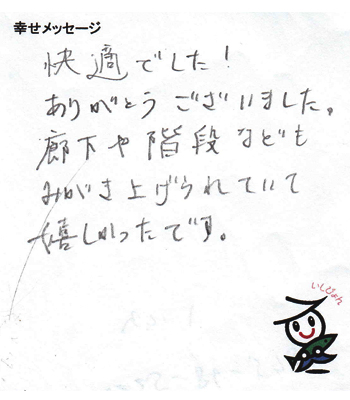 幸せメッセージ
快適でした!
ありがとうございました。
廊下や階段なども
みがき上げられていて
嬉しかったです。
いしぴょん